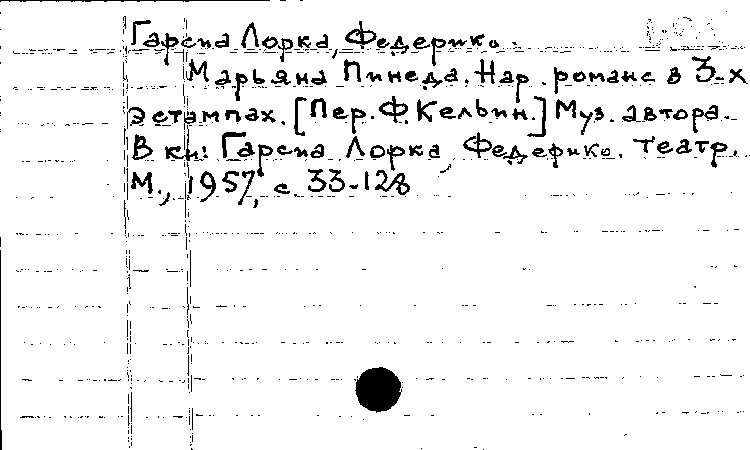 Гарсиа Лорка, Федерико.
Марьяна Пинеда. Нар. романс в 3-х
эстампах. [Пер. Ф. Кельин.] Муз. автора.
В кн: Гарсиа Лорка, Федерико. Театр.
М., 1957, с. 33-128